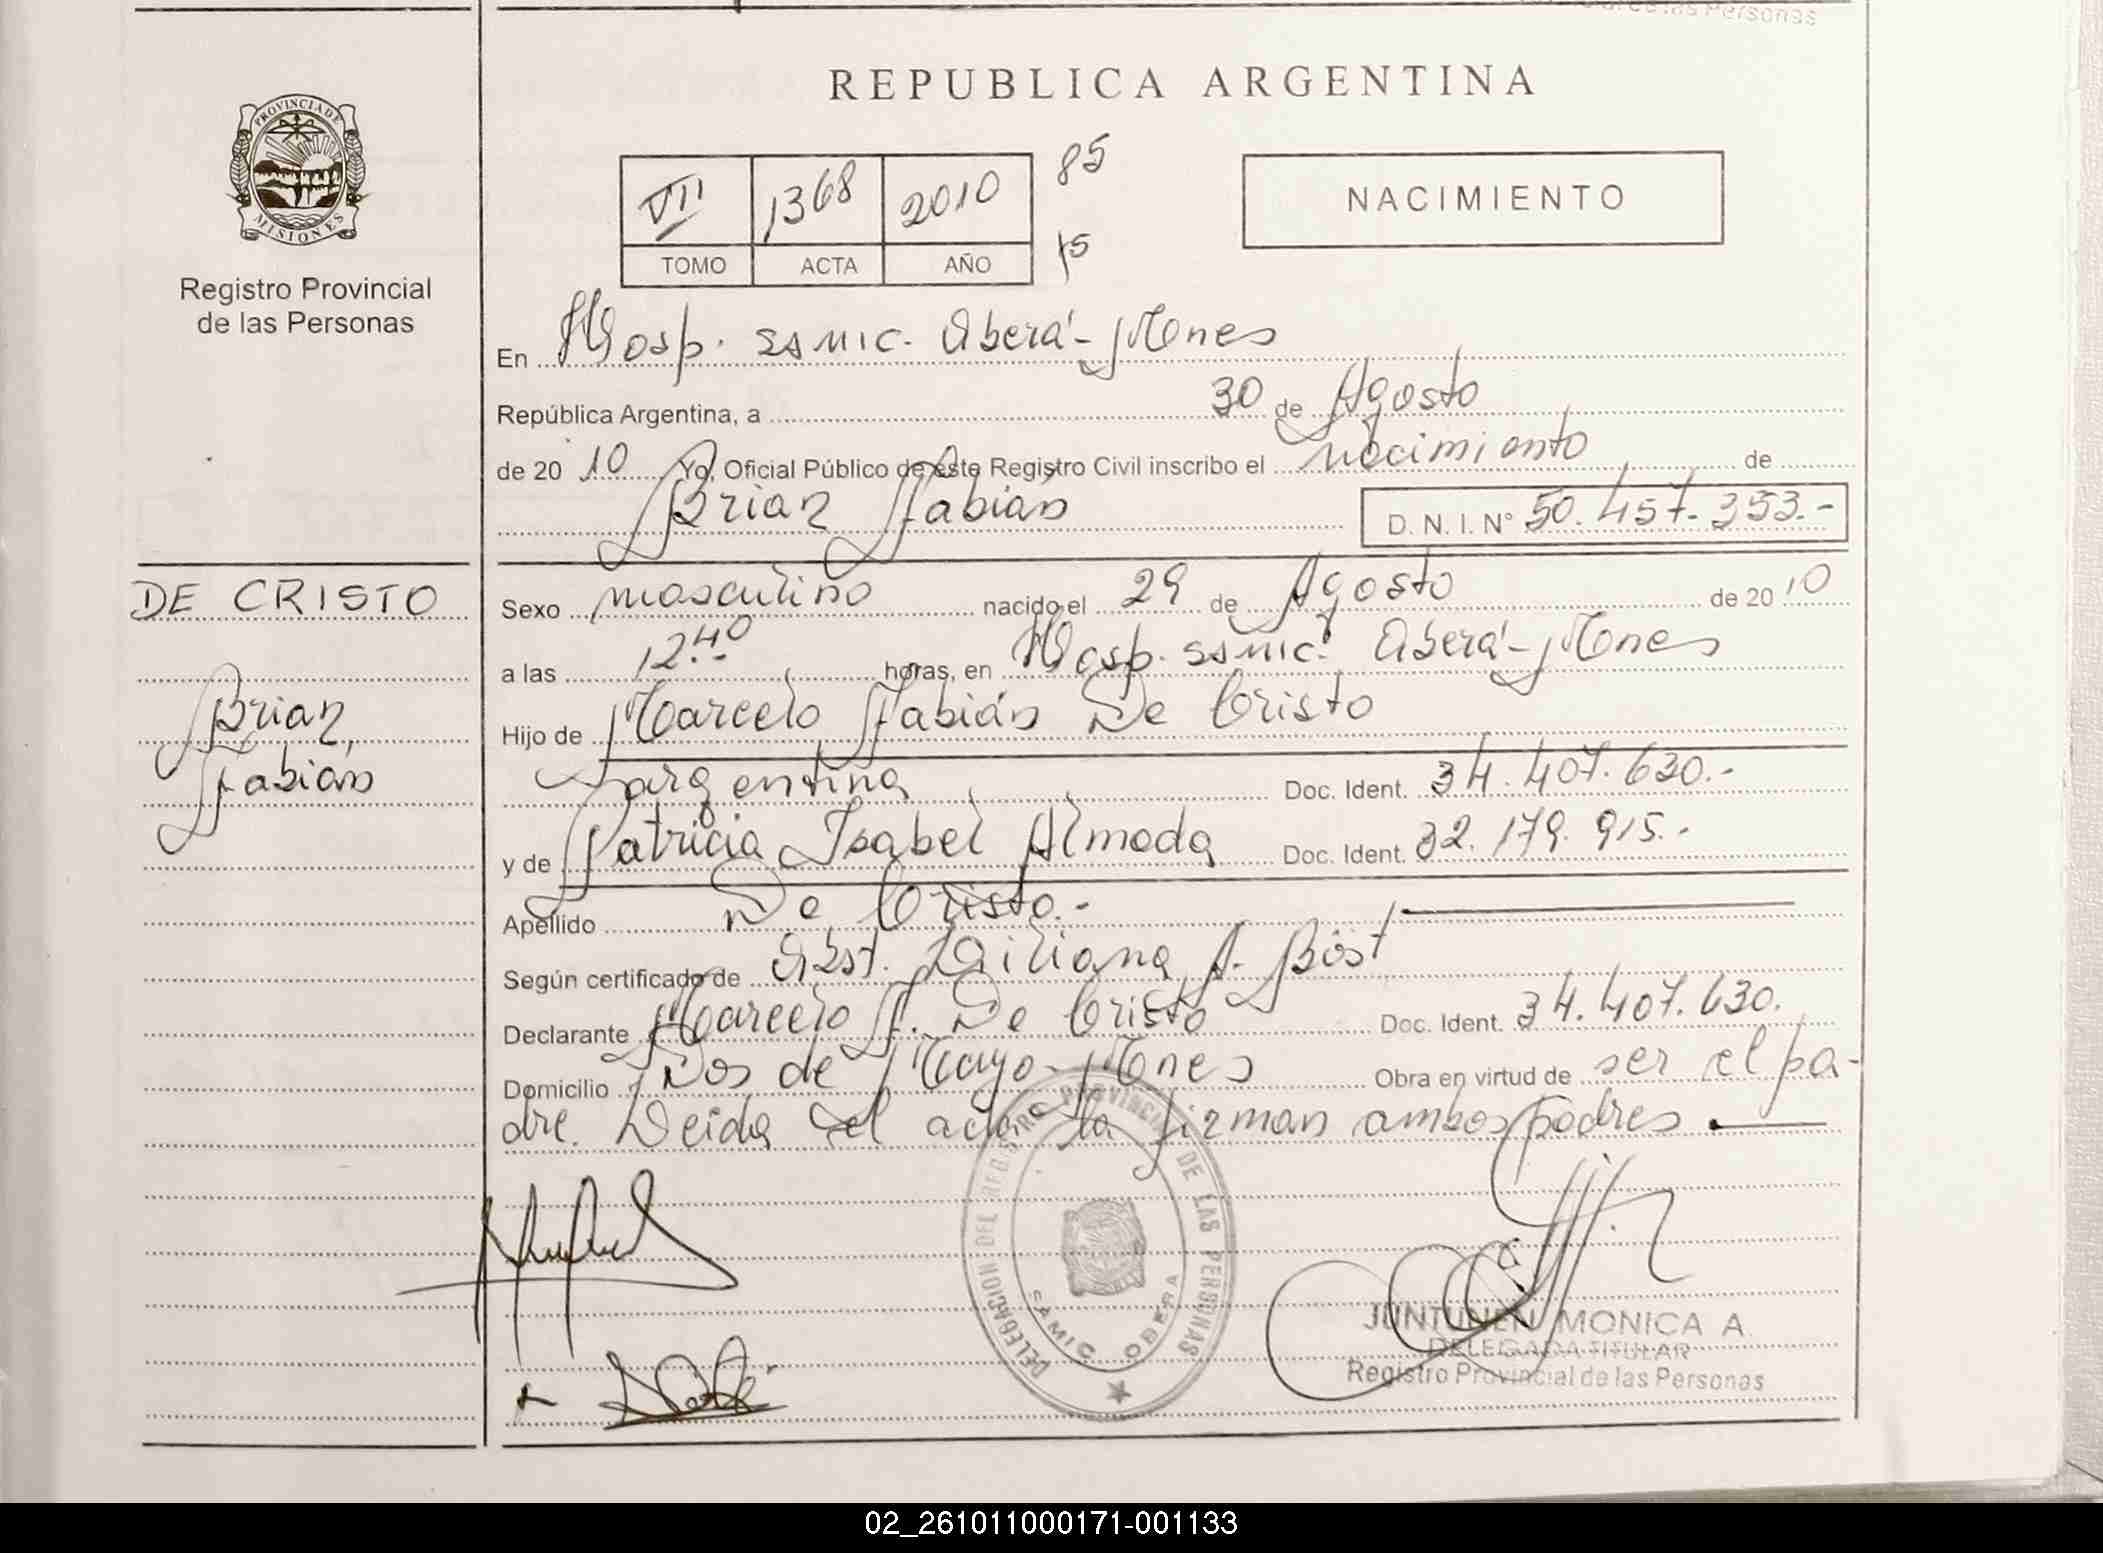 REPUBLICA ARGENTINA
PROVINCIA DE MISIONES
Registro Provincial
de las Personas
VII 1368 2010 85
TOMO ACTA AÑO 15
NACIMIENTO
En Hosp. SAMIC. Oberá-Mnes
República Argentina, a 30 de Agosto
de 2010 Yo, Oficial Público de este Registro Civil inscribo el nacimiento de
Brian Fabián D. N. I. N° 50.457.353.-
DE CRISTO
Brian,
Fabián
Sexo masculino nacido el 29 de Agosto de 2010
a las 12.40 horas, en Hosp. SAMIC. Oberá-Mnes
Hijo de Marcelo Fabián De Cristo
argentina Doc. Ident. 34.407.630.-
y de Patricia Isabel Almada Doc. Ident. 32.179.915.-
Apellido De Cristo.-
Según certificado de Obst. Liliana A. Bost
Declarante Marcelo F. De Cristo Doc. Ident. 34.407.630.
Domicilio Dos de Mayo-Mnes Obra en virtud de ser el pa-
dre. Leida el acta la firman ambos padres.
DELEGACION DEL REGISTRO PROVINCIAL DE LAS PERSONAS
SAMIC OBERA
JUNTUNEN MONICA A.
DELEGADA TITULAR
Registro Provincial de las Personas
02_261011000171-001133